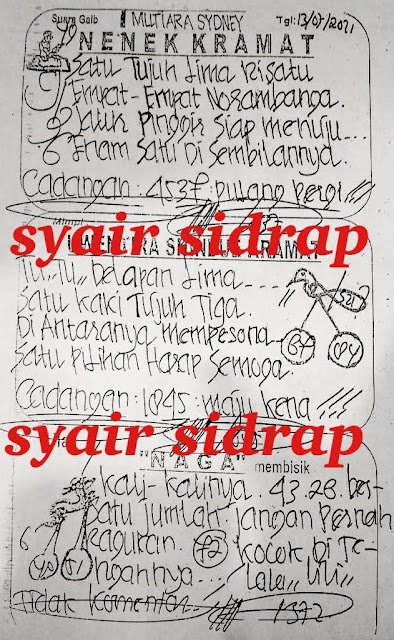 Suara Gaib MUTIARA SYDNEY Tgl: 13/07/2021
NENEK KRAMAT
Satu Tujuh Lima
Empat-Empat
Siap menuju...
Enam Satu Di Sembilannya.
Cadangan: 4537: pulang pergi
syair sidrap
Mimpi
KRAMAT
Delapan Lima
Satu Kaki Tujuh Tiga.
Di Antaranya mempesona
Satu Pilihan Harap Semoga.
67
Cadangan: 1845: maju kena
syair sidrap
"NAGA" membisik
Kali-Kalinya. 43.28. ber-
satu jumlah jangan Pernah
ragukan. 72 Kocok Di Te-
ngahnya... Lalu,,
Tidak Komentar 1372